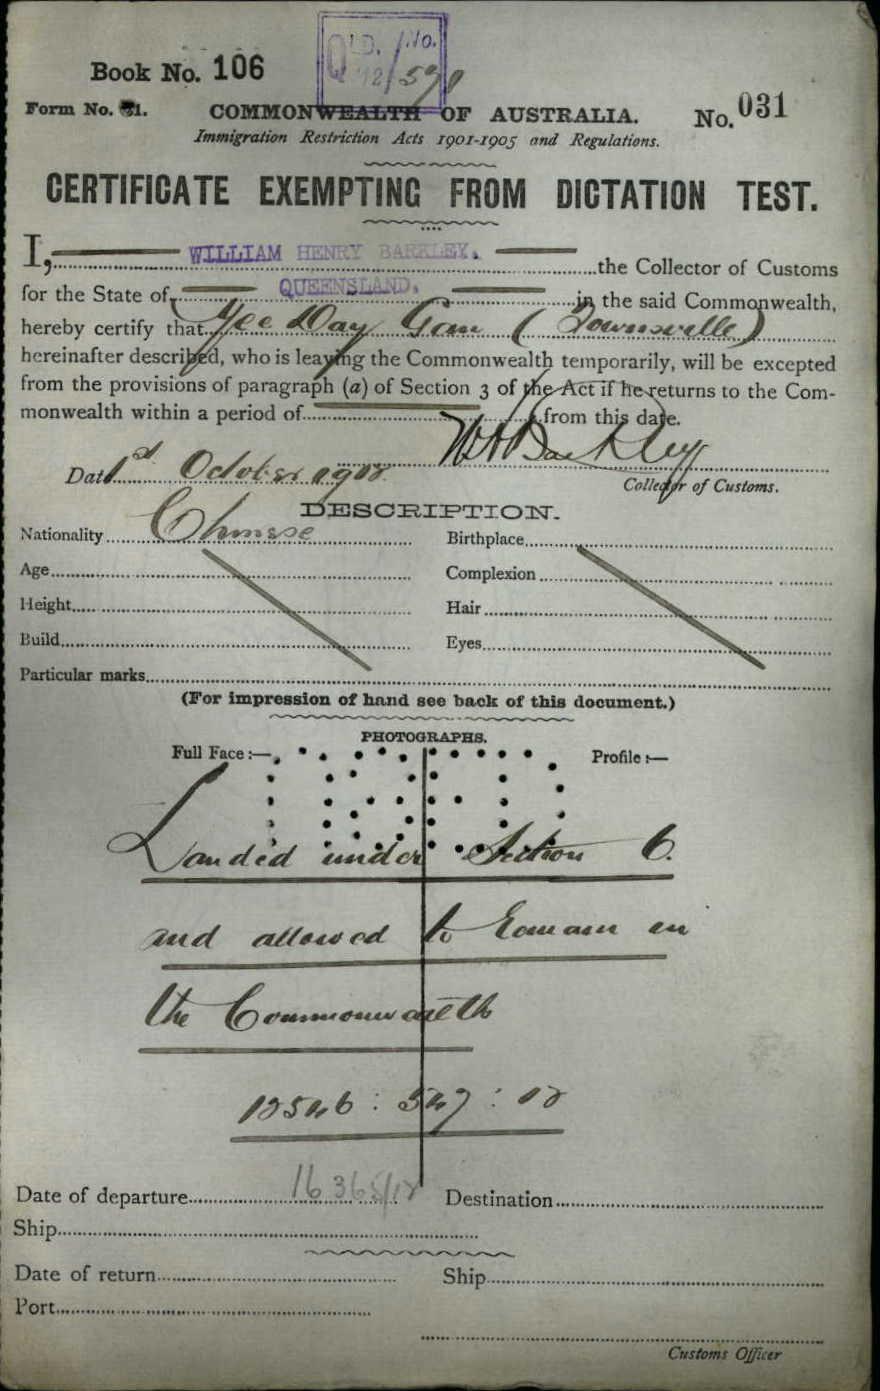 QLD. No.
12/591
Book No. 106
Form No. 21.
COMMONWEALTH OF AUSTRALIA.
No. 031
Immigration Restriction Acts 1901-1905 and Regulations.
CERTIFICATE EXEMPTING FROM DICTATION TEST.
I, WILLIAM HENRY BARKLEY. the Collector of Customs
for the State of QUEENSLAND. in the said Commonwealth,
hereby certify that Yee Day Gan (Townsville)
hereinafter described, who is leaving the Commonwealth temporarily, will be excepted
from the provisions of paragraph (a) of Section 3 of the Act if he returns to the Com-
monwealth within a period of from this date.
W H Barkley
Date 1st October 1912
Collector of Customs.
DESCRIPTION.
Nationality Chinese Birthplace
Age Complexion
Height Hair
Build Eyes
Particular marks
(For impression of hand see back of this document.)
PHOTOGRAPHS.
Full Face :— Profile :—
Landed under Section 6.
and allowed to remain in
the Commonwealth
12546 : 547 : 12
Date of departure Destination
Ship
Date of return Ship
Port
Customs Officer